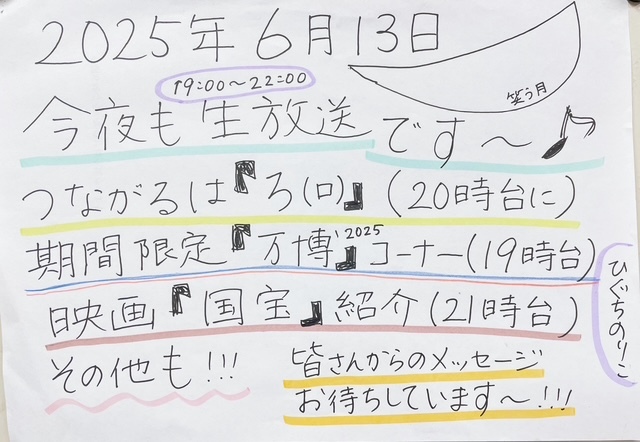 2025年6月13日
19:00～22:00
笑う月
今夜も生放送です～♪
つながるは『ろ(口)』(20時台に)
期間限定『万博'2025』コーナー(19時台)
映画『国宝』紹介(21時台)
ひぐちのりこ
その他も!!!
皆さんからのメッセージ
お待ちしています～!!!